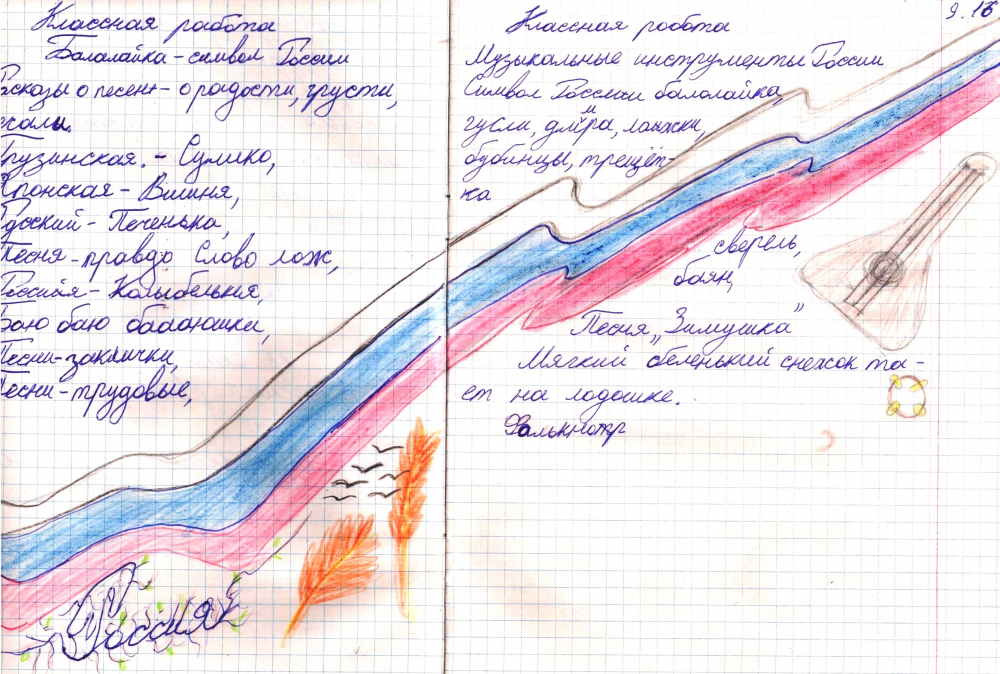 Классная работа
Балалайка - символ России
о песен - о радости, грусти,
Грузинская. - Сулико,
Японская - Вишня,
Песня - правда Слово лож,
Колыбельния,
Баю баю бааающки,
Песни-заклички,
Песни-трудовые,
Россия
9.16
Классная работа
Музыкальные инструменты России
Символ России балолайка,
гусли, ложки,
бубинцы, трещёт-
ка
сверель,
баян,
Песня „Зимушка"
Мягкий беленький снежок та-
ет на ладошке.